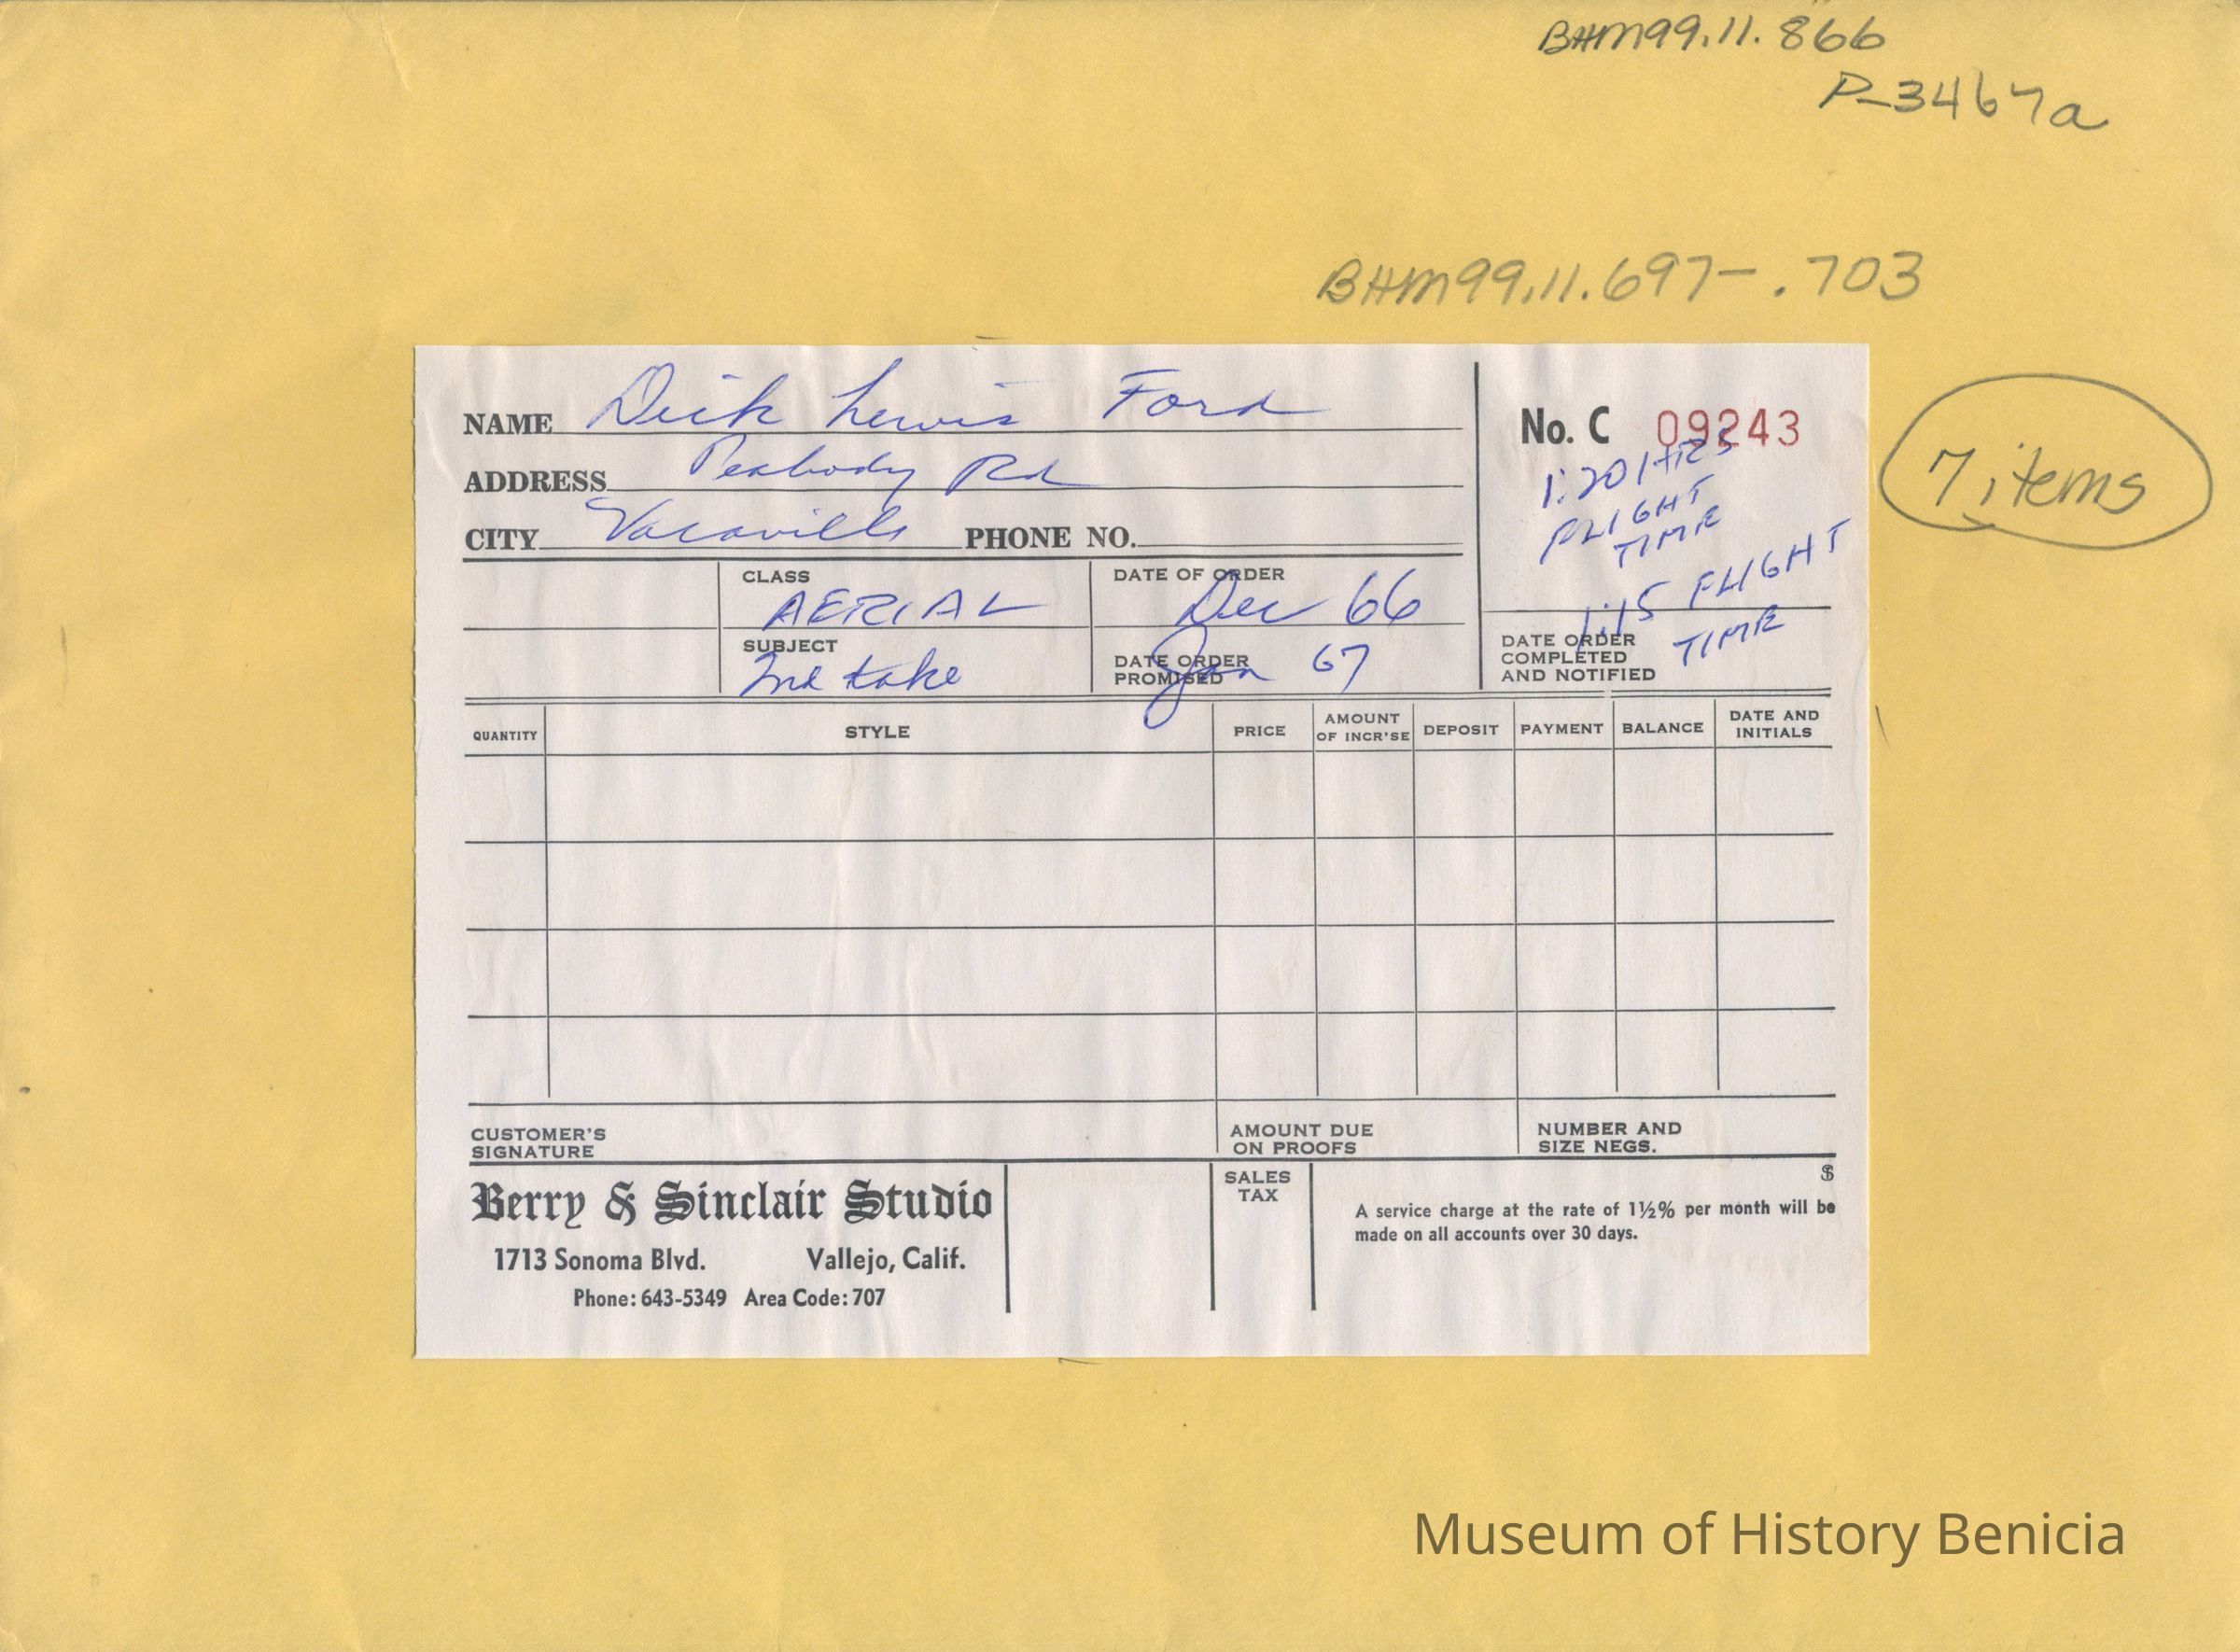 BHM99.11.866
P-3467a
BHM99.11.697-.703
7 items
NAME Dick Lewis Ford
ADDRESS Peabody Rd
CITY Vacaville PHONE NO.
No. C 09243
1:20 HRS
FLIGHT
TIME
1:15 FLIGHT
TIME
CLASS
AERIAL
DATE OF ORDER
Dec 66
SUBJECT
2nd take
DATE ORDER
PROMISED
Jan 67
DATE ORDER
COMPLETED
AND NOTIFIED
QUANTITY STYLE PRICE AMOUNT OF INCR'SE DEPOSIT PAYMENT BALANCE DATE AND INITIALS
CUSTOMER'S
SIGNATURE
AMOUNT DUE
ON PROOFS
NUMBER AND
SIZE NEGS.
Berry & Sinclair Studio
1713 Sonoma Blvd. Vallejo, Calif.
Phone: 643-5349 Area Code: 707
SALES
TAX
$
A service charge at the rate of 1½% per month will be
made on all accounts over 30 days.
Museum of History Benicia